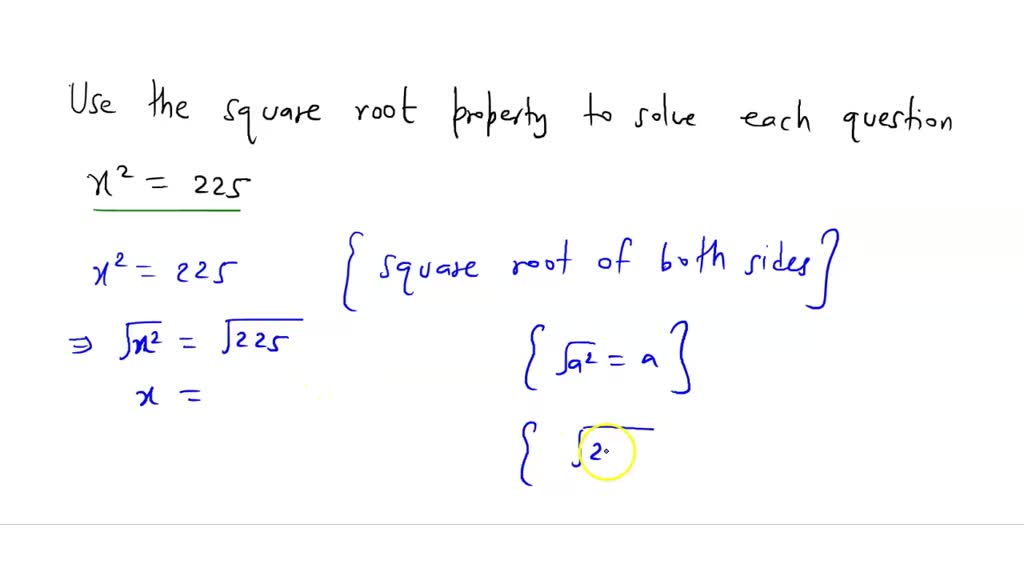 Use the square root property to solve each question
x² = 225
x² = 225 { square root of both sides }
⇒ √x² = √225
{ √a² = a }
x =
{ √2